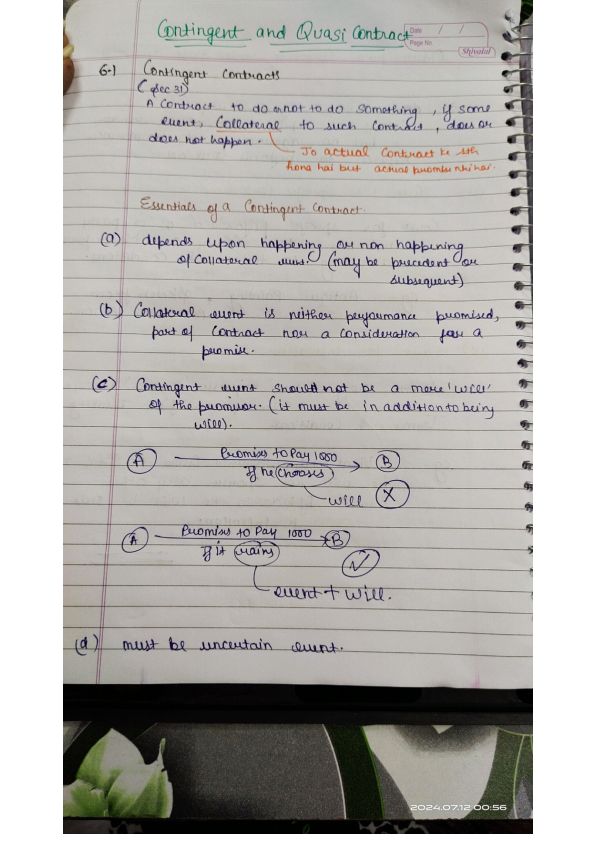 Contingent and Quasi Contract
Date / /
Page No.
Shivalal
6.1 Contingent Contracts
(Sec 31)
A Contract to do or not to do something, if some
event, Collateral to such Contract, does or
does not happen.
Jo actual Contract ke sth
hona hai but actual promise nhi hai.
Essentials of a Contingent Contract.
(a) depends upon happening or non happening
of Collateral event. (may be precedent or
subsequent)
(b) Collateral event is neither performance promised,
part of Contract nor a consideration for a
promise.
(c) Contingent event should not be a mere 'will'
of the promisor. (it must be in addition to being
will).
A Promises to Pay 1000 B
If he Chooses
will X
A Promises to Pay 1000 B
If it rains
event + will.
(d) must be uncertain event.
2024.07.12 00:56